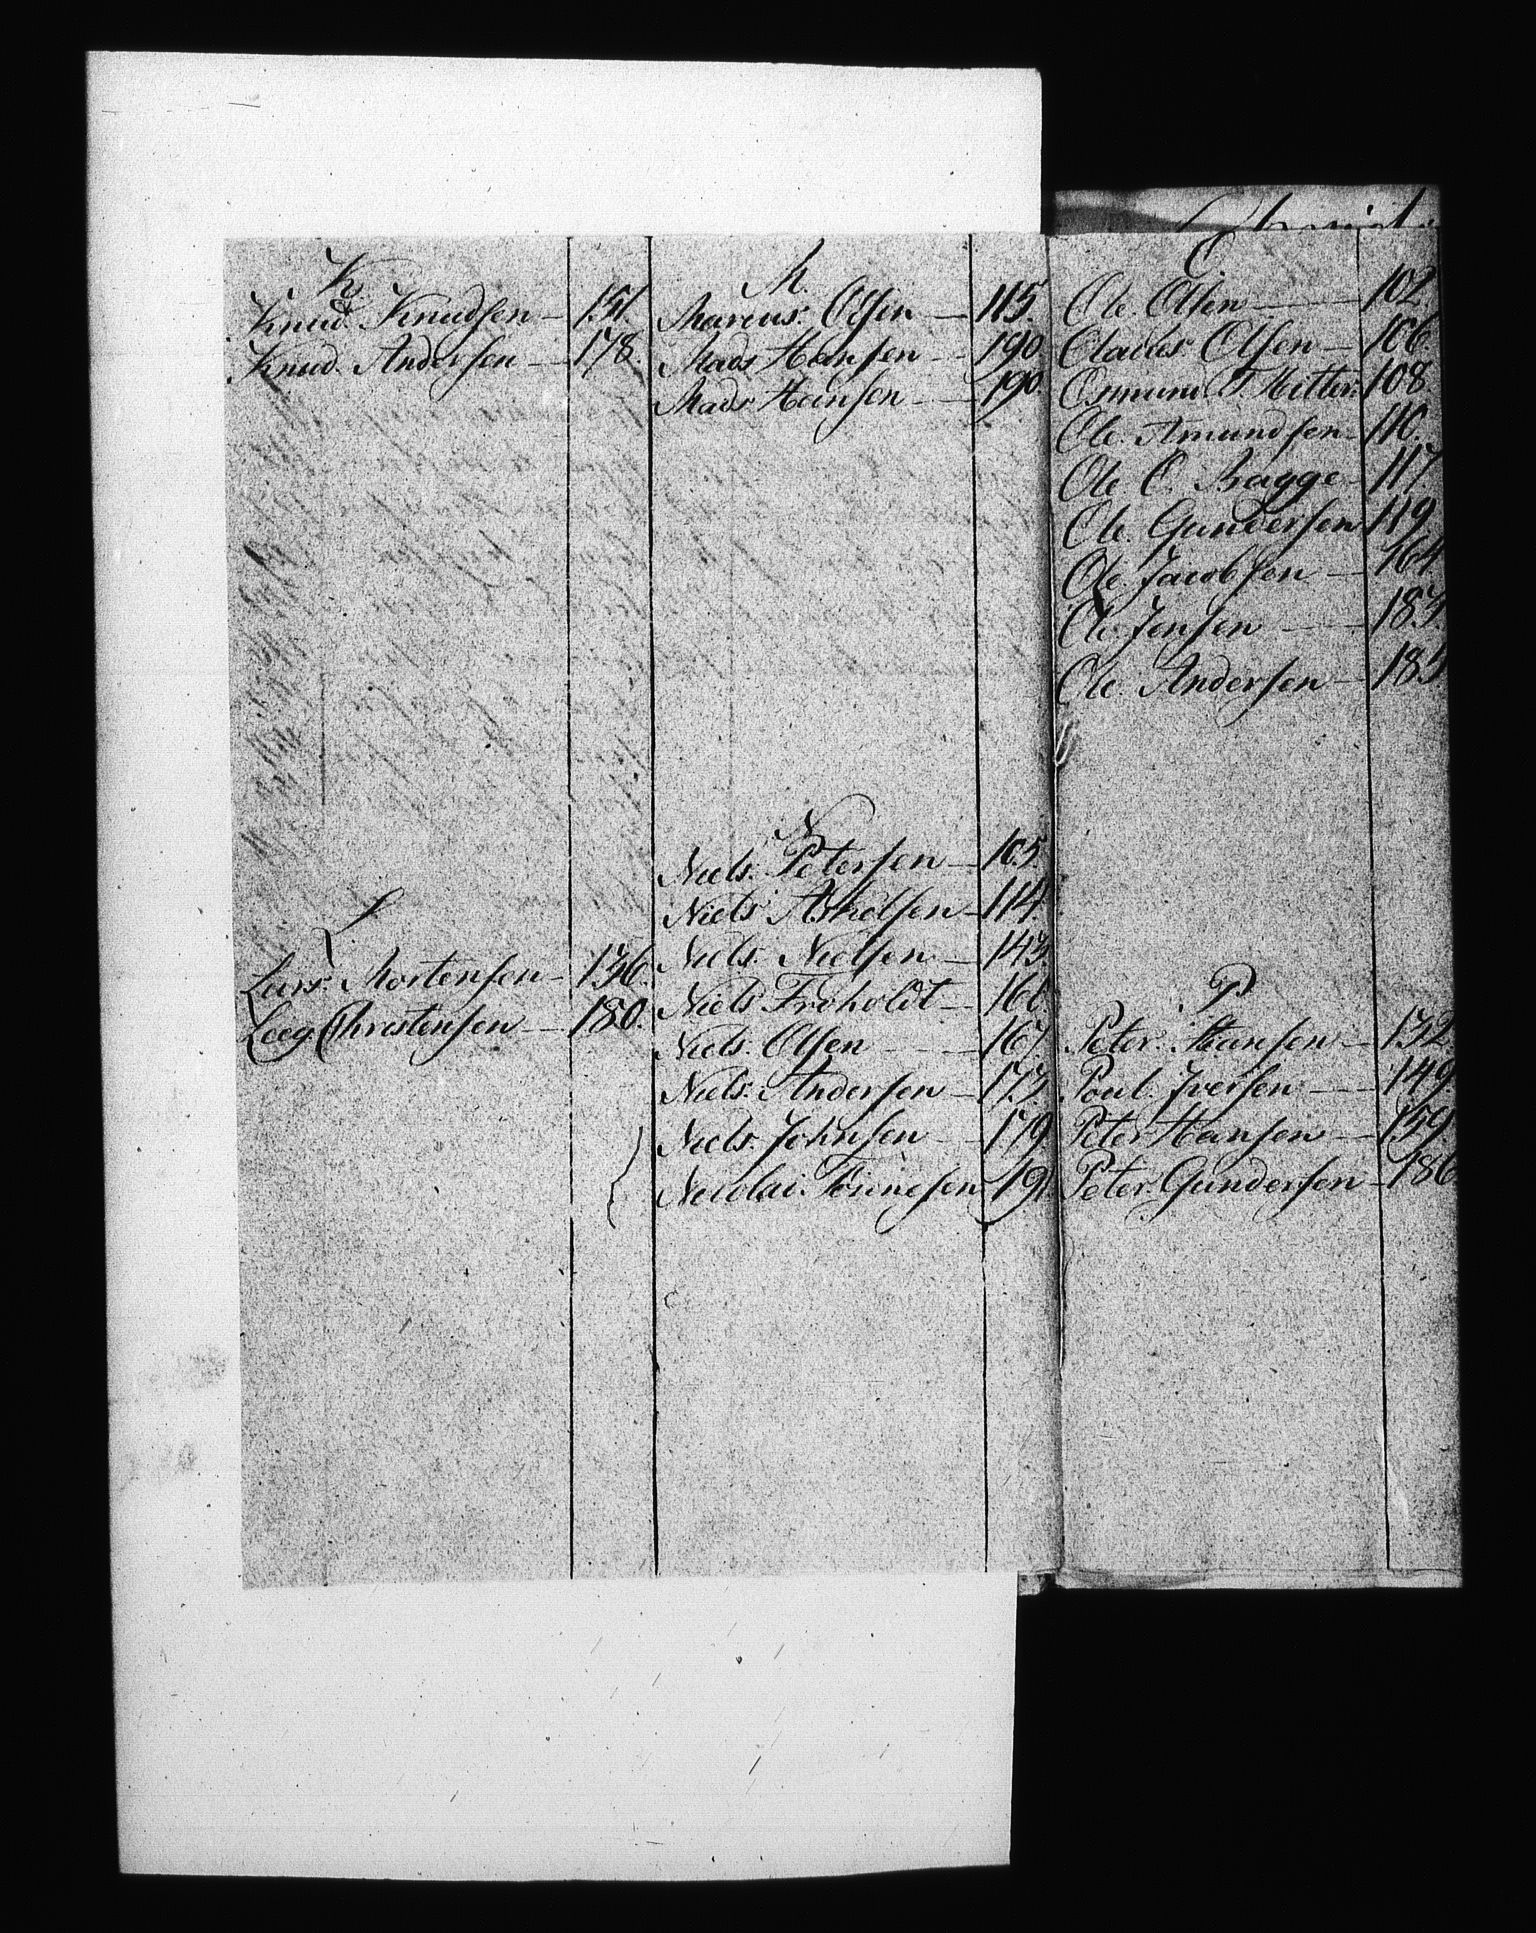 K
Knud Knudsen — 151.
Knud Andersen — 178.
L
Lars Mortensen — 136.
Christensen — 180.
M.
Marcus Olsen — 115.
Mads Hansen — 190
Mads Hansen — 190.
N
Niels Petersen — 105.
Niels Askelsen — 114
Niels Nielsen — 143
Niels Froholdt — 166
Niels Olsen — 167
Niels Andersen — 173
Niels Johnsen — 179
Nicolai 191
O
Ole Olsen — 102.
Olaus Olsen — 106
Osmund T. 108
Ole Amundsen — 110.
Ole O. Bagge — 117
Ole Gundersen 119
Ole Jacobsen — 164
Ole Jensen — 183
Ole Andersen — 185
P
Peter Hansen — 132
Poul Iversen — 149
Peter Hansen — 159
Peter Gundersen — 186